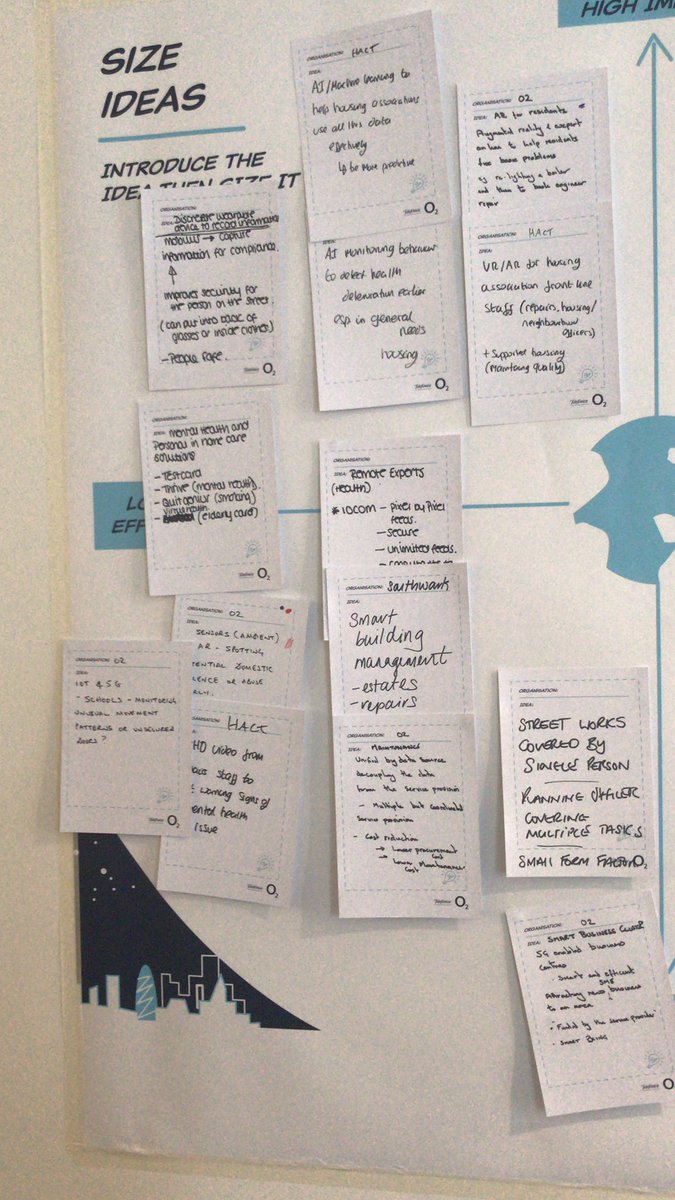 HIGH IM
SIZE
IDEAS
INTRODUCE THE
IDEA THEN SIZE IT
ORGANISATION: HACT
IDEA:
AI/Machine learning to
help housing associations
use all this data
effectively
↳ be more predictive
Telefonica O2
ORGANISATION: O2
IDEA: AR for residents
Augmented reality & expert
on hand to help residents
fix home problems
eg re-lighting a boiler
and then to book engineer
repair
ORGANISATION:
IDEA: Discrete wearable
device to record information
→ capture
information for compliance.
improves security for
the person on the street.
(can put into back of
glasses or inside clothes)
- People safe.
Telefonica O2
IDEA:
AI Monitoring behaviour
to detect health
deterioration earlier
esp in general
needs
housing
Telefonica O2
ORGANISATION: HACT
IDEA:
VR/AR for housing
association front line
staff (repairs, housing/
neighbourhood
officers)
+ Supported housing
(Maintaining quality)
Telefonica O2
ORGANISATION:
IDEA: Mental Health and
Personal in home care
solutions
- Testcard
- Thrive (mental health).
- Quit genius (smoking)
virtual health
- (elderly care)
Telefonica O2
LO
EFF
ORGANISATION:
IDEA: Remote Experts
(Health)
* IOCOM - Pixel by Pixel
feeds.
- secure
- unlimited feeds.
ORGANISATION: Southwark
IDEA:
Smart
building
management
- estates
- repairs
ORGANISATION: O2
SENSORS (AMBIENT)
AR - SPOTTING
TENTIAL DOMESTIC
LENCE OR ABUSE
ORGANISATION: O2
IDEA:
IOT & 5G
- SCHOOLS - MONITORING
UNUSUAL MOVEMENT
PATTERNS OR UNSECURED
DOORS?
Telefonica O2
ORGANISATION: HACT
HD video from
ous staff to
warning signs of
ental health
issue
Telefonica O2
ORGANISATION: O2
IDEA: MAINTENANCE
Unified by data source
decoupling the data
from the service provision
- Multiple but coordinated
service provision
- Cost reduction
→ Lower procurement
cost
→ Lower Maintenance
cost
Telefonica O2
ORGANISATION:
IDEA:
STREET WORKS
COVERED BY
SINGLE PERSON
PLANNING OFFICER
COVERING
MULTIPLE TASKS
SMALL FORM FACTOR
O2
ORGANISATION: O2
IDEA: SMART BUSINESS CLUSTER
5G enabled business
centres
- Smart and efficient
SME
Attracting new business
to an area
- Funded by the service provider
- SMART BEINGS
Telefonica O2